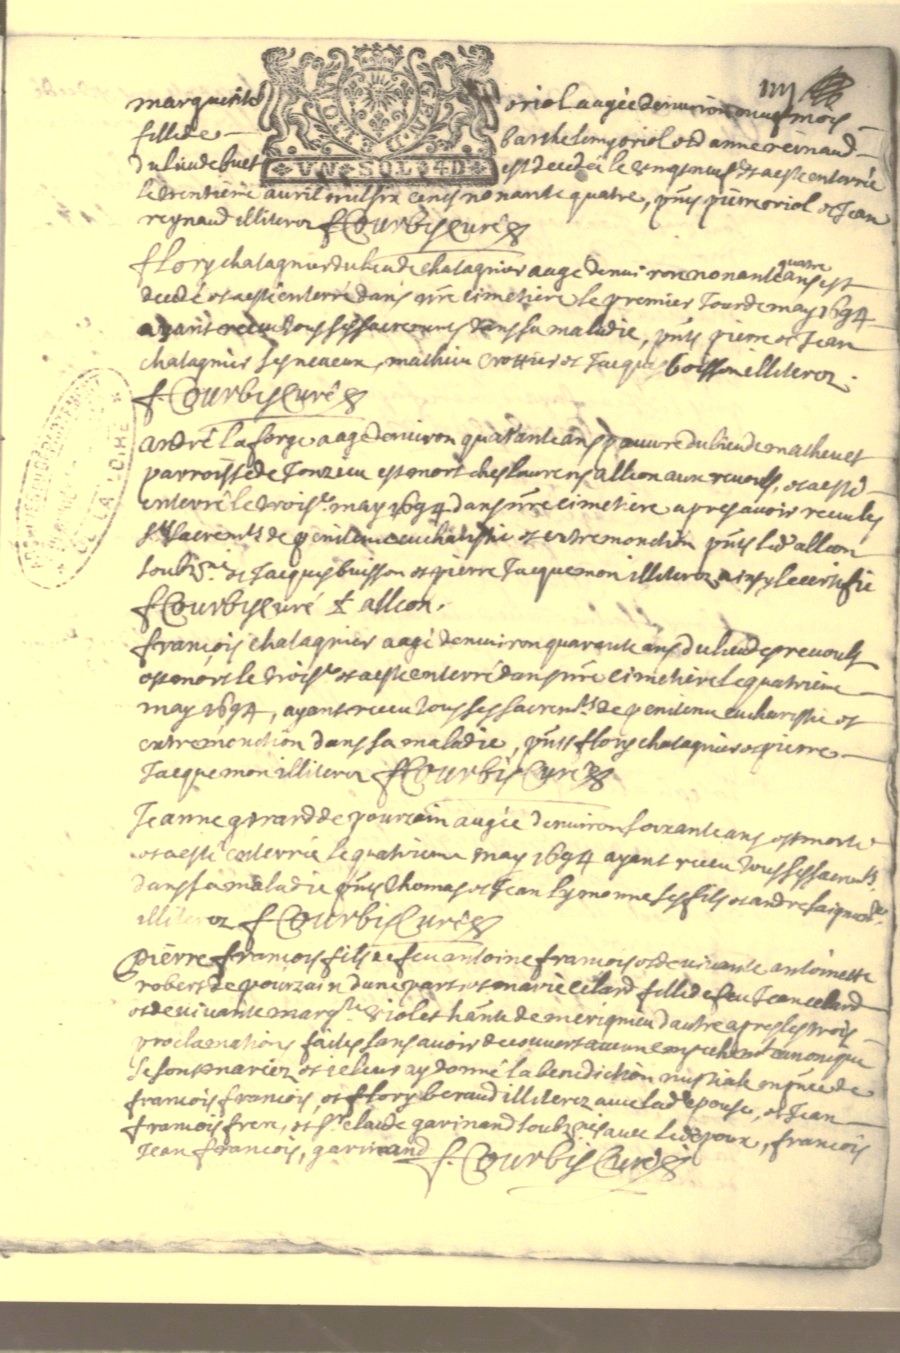 marguerite oriol aagée denviron neuf mois
fillie de barthelemy oriol et d anne reinaud
du lieu de buet est decedé le vingt neuf et a esté enterrée
VN SOL 4D
le trentieme avril mil six cents nonante quatre, pnts pierre oriol et Jean
reynaud illiterez f Courbis Curé
flory chatagnier du lieu de chatagnier aagé denviron nonante quatre ans est
decedé et a esté enterré dans nre cimetiere le premier Jour de may 1694
ayant receu tous ses sacrements dans sa maladie, pnts pierre et Jean
chatagnier ses neveux, mathieu Crottier et Jacques boisson illiterez.
f Courbis Curé
André laforge aagé denviron quarante ans pauvre du lieu de mathevet
parroisse de Jonzieu est mort ches laurens allion aux prevouls, et a esté
enterré le troise. may 1694 dans nre cimetiere apres avoir receu les
sts sacremts de penitence eucharistie et extremonction pnts led allion
soubzné et Jacques buisson et pierre Jacquemon illiterez ainsy le certifie
f Courbis Curé allion.
françois chatagnier aagé denviron quarante ans du lieu de prevouls
est mort le troise. et a esté enterré dans nre cimetiere le quatrieme
may 1694, ayant receu tous ses sacremts de penitence eucharistie et
extremonction dans sa maladie, pnts flory chatagnier et pierre
Jacquemon illiterez f Courbis Curé
Jeanne girard de pourzain aagée denviron soixante ans est morte
et a esté enterrée le quatrieme may 1694 ayant receu tous ses sacremts.
dans sa maladie pnts thomas et Jean lymonne ses fils et andre
illiterez f Courbis Curé
pierre françois fils de feu antoine françois et de vivante antoinette
robert de pourzain d une part et marie celard fille de feu Jean celard
et de vivante margte. violet hante de merignieu d autre apres les trois
proclamations faites sans avoir decouvert aucun empechement canonique
se sont mariez et je leur ay donné la benediction nuptiale en pnce de
françois françois, et flory beraud illiterez avec lade epouse, et Jean
françois frere, et Sr claude garinand soubznés avec led epoux, françois
Jean françois, garinand f. Courbis Curé